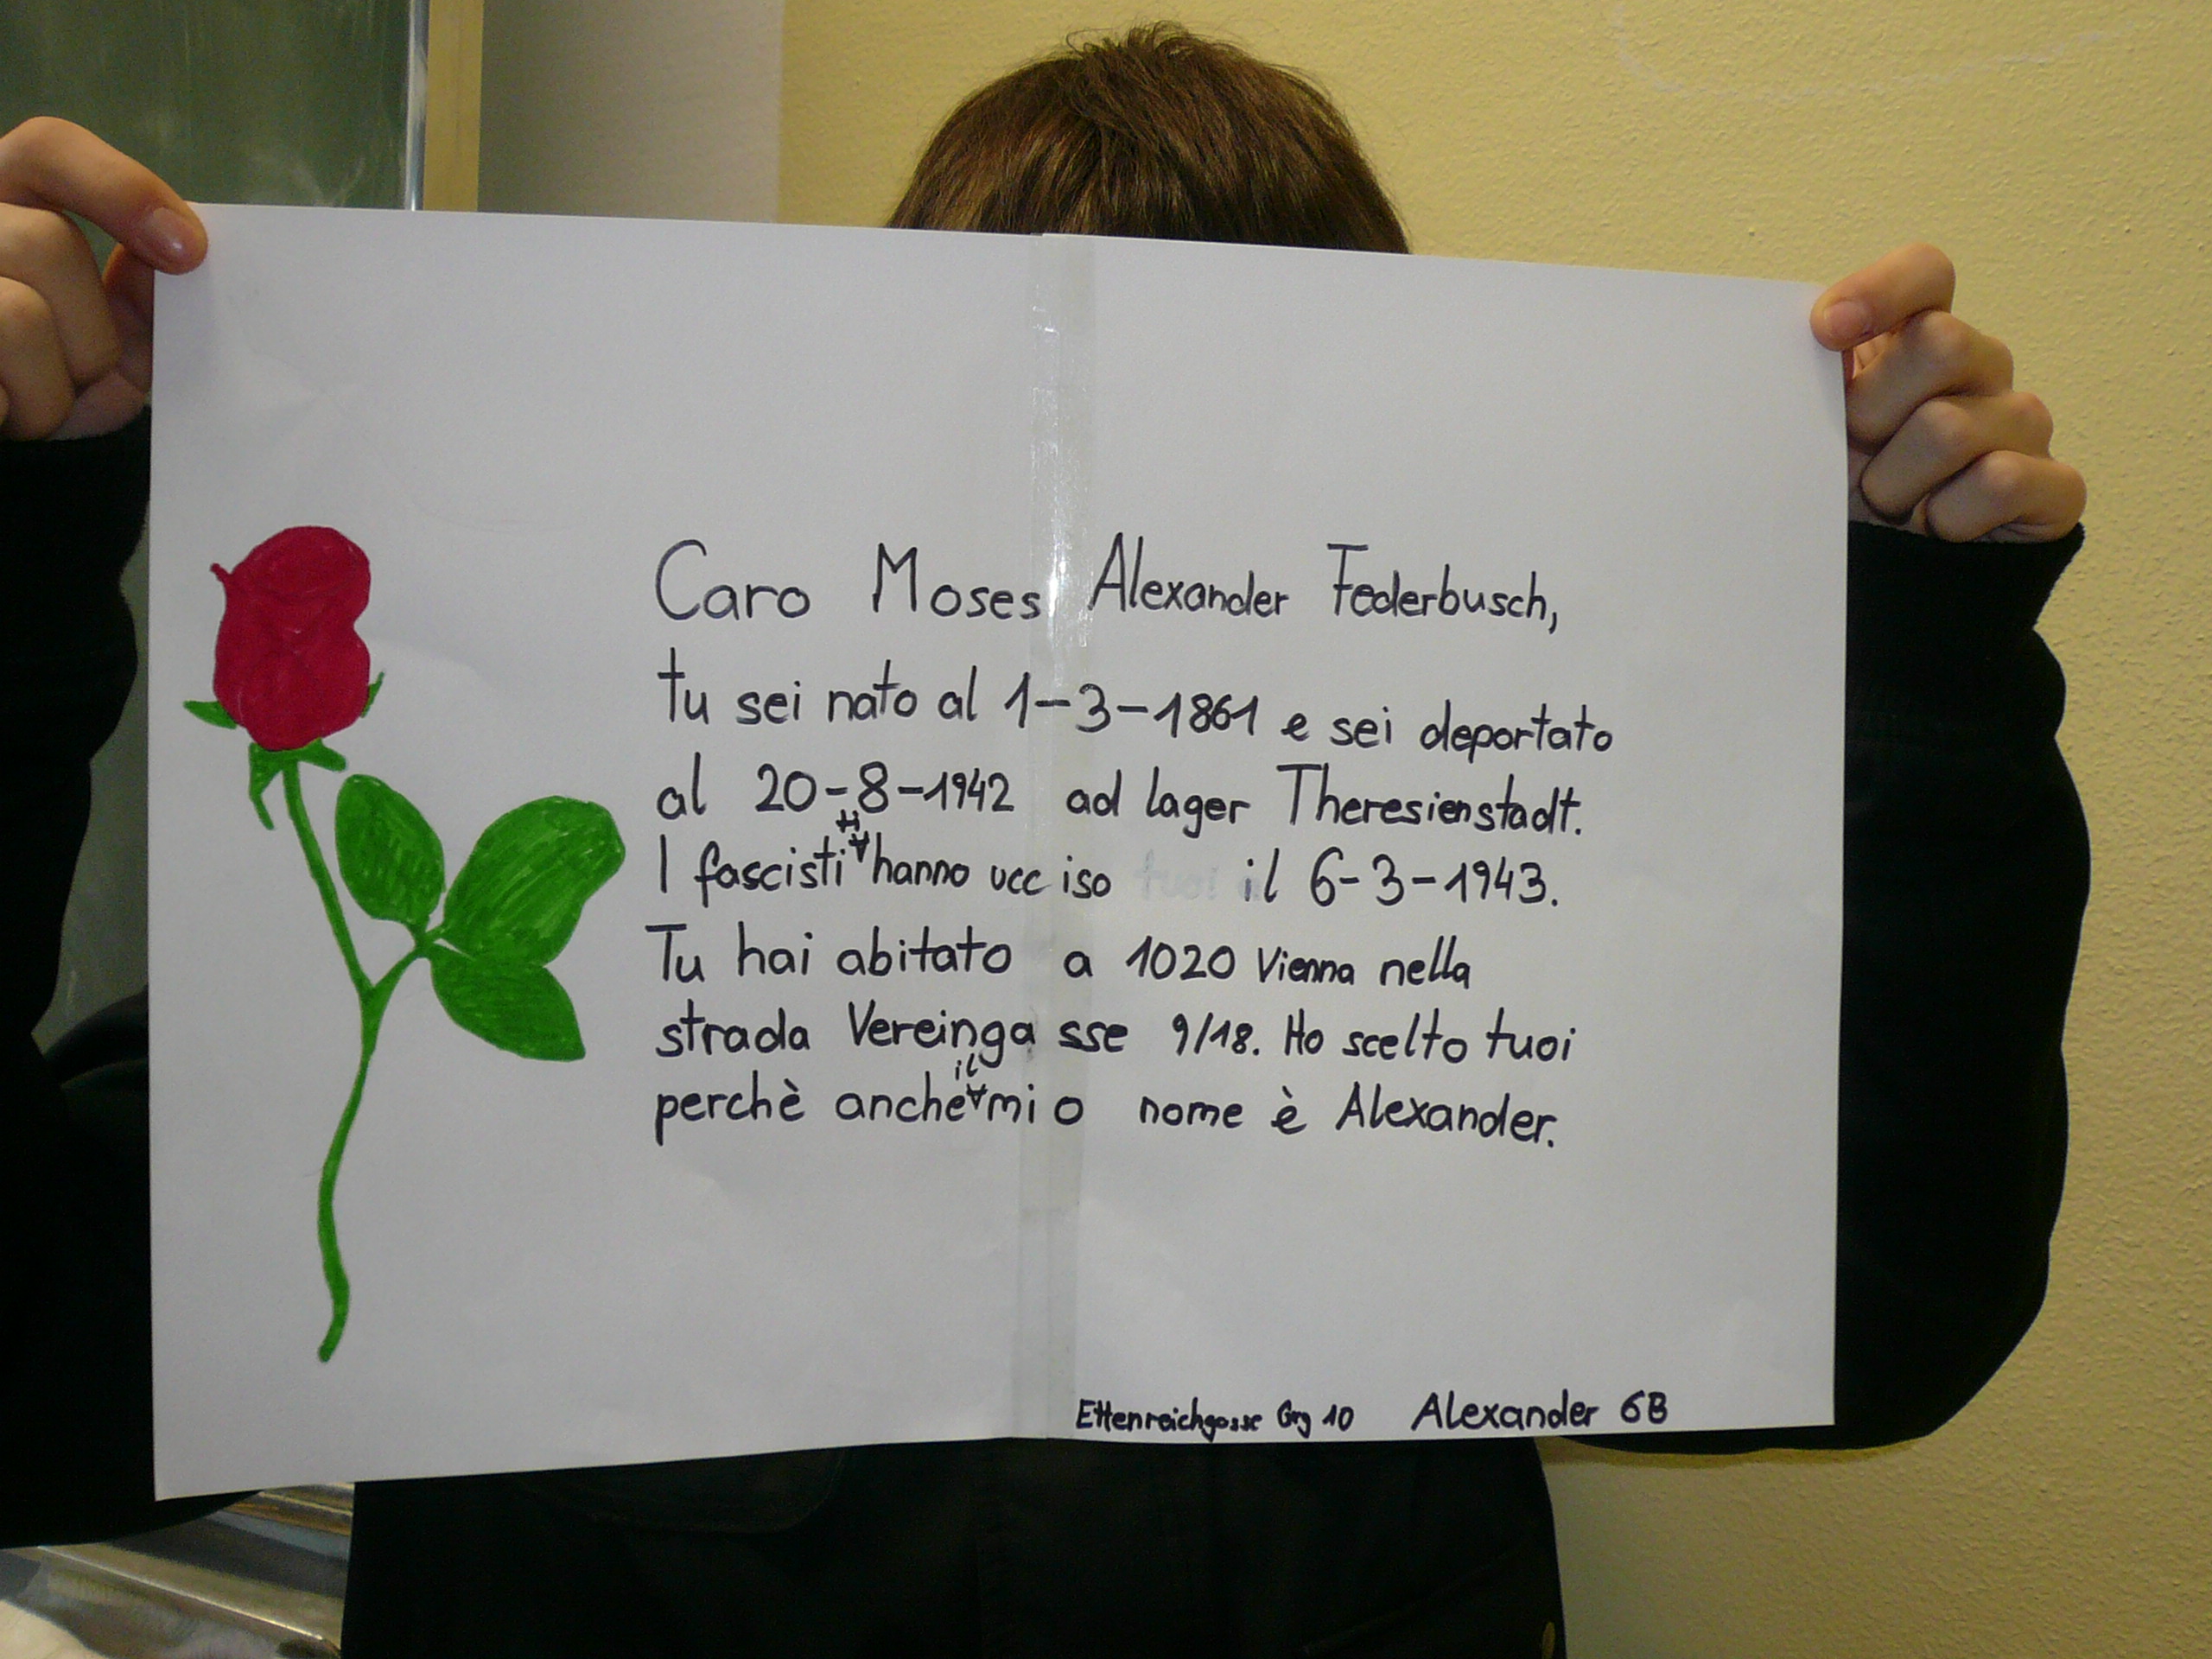 Caro Moses Alexander Federbusch,
tu sei nato al 1-3-1861 e sei deportato
al 20-8-1942 ad lager Theresienstadt.
I fascisti ti hanno ucciso il 6-3-1943.
Tu hai abitato a 1020 Vienna nella
strada Vereingasse 9/18. Ho scelto tuoi
perchè anche il mio nome è Alexander.
Ettenreichgasse Grg 10 Alexander 6B